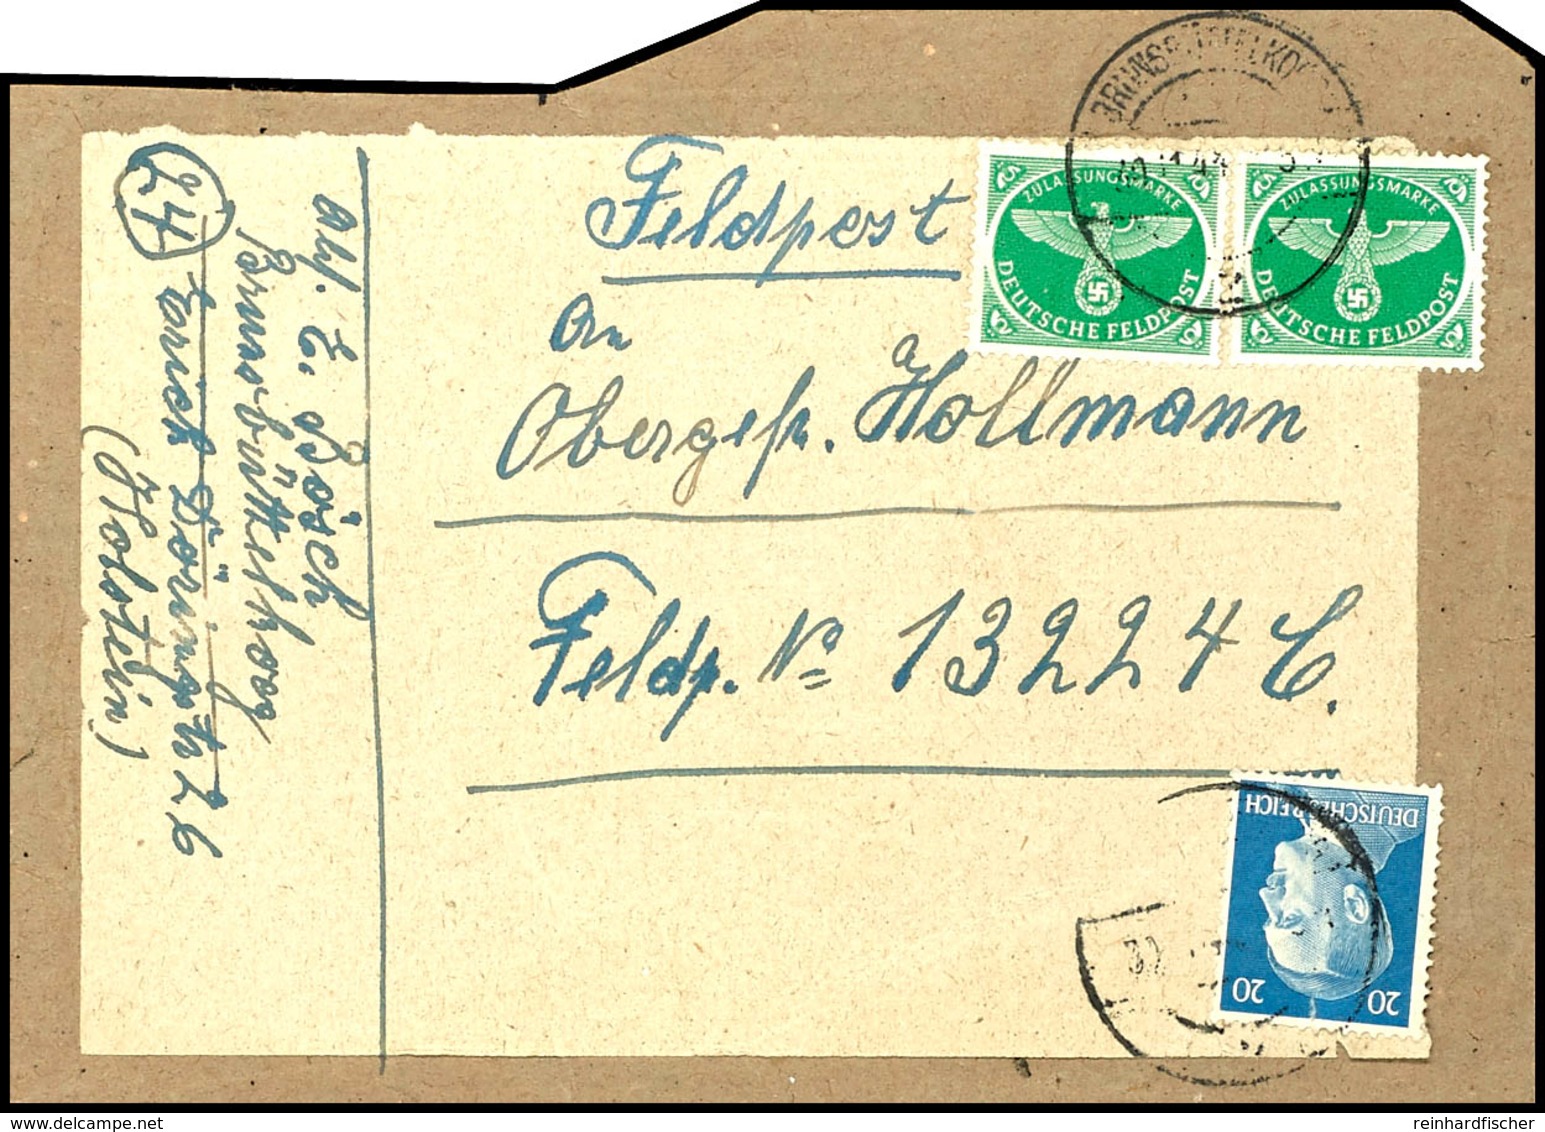 BRUNSBÜTTELKOOG
ZULASSUNGSMARKE
DEUTSCHE FELDPOST
ZULASSUNGSMARKE
DEUTSCHE FELDPOST
Feldpost
An
Obergefr. Hollmann
Feldp. No 13224 C.
Abs. E. Bösch
Brunsbüttelkoog
24 Döringstr 26
(Holstein)
DEUTSCHES REICH
20 20
delcampe.net
reinhardfischer